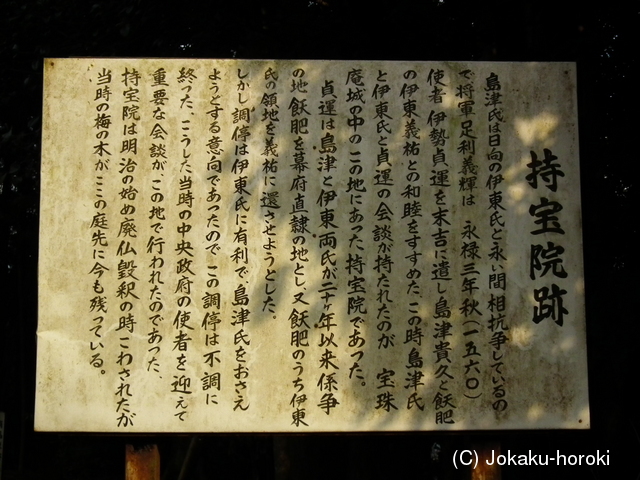 持宝院跡
島津氏は日向の伊東氏と永い間相抗争しているの
で将軍足利義輝は 永禄三年秋(一五六〇)
使者伊勢貞運を末吉に遣し島津貴久と飫肥
の伊東義祐との和睦をすすめた、この時島津氏
と伊東氏と貞運の会談が持たれたのが 宝珠
庵城の中のこの地にあった持宝院であった。
貞運は島津と伊東両氏が二十ヶ年以来係争
の地飫肥を幕府直隷の地とし、又飫肥のうち伊東
氏の領地を義祐に還させようとした。
しかし調停は伊東氏に有利で島津氏をおさえ
ようとする意向であったので この調停は不調に
終った、こうした当時の中央政府の使者を迎えて
重要な会談が この地で行われたのであった、
持宝院は明治の始め廃仏毀釈の時こわされたが
当時の梅の木がここの庭先に今も残っている。
(C) Jokaku-horoki